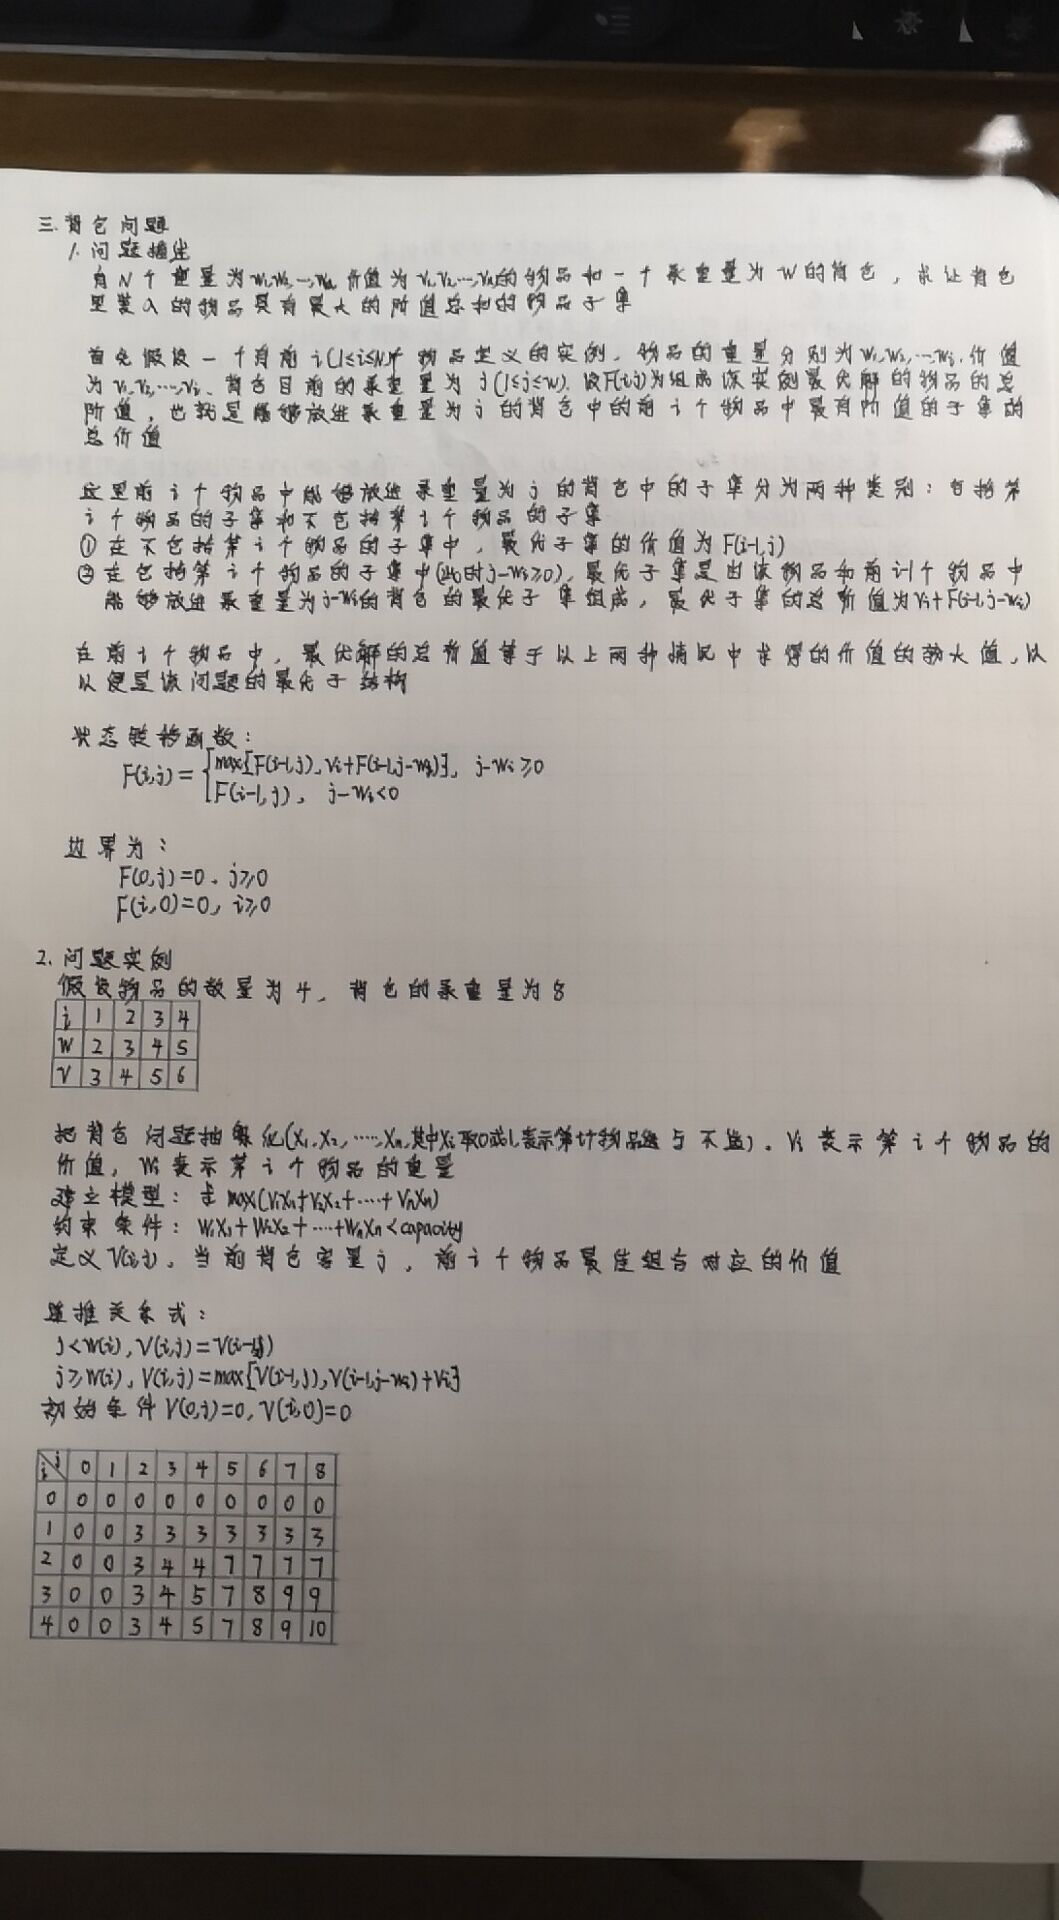 三.背包问题
1.问题描述
有N个重量为w₁,w₂,…,wₙ,价值为v₁,v₂,…,vₙ的物品和一个承重量为W的背包，求让背包
里装入的物品具有最大的价值总和的物品子集
首先假设一个有前i(1≤i≤N)个物品定义的实例，物品的重量分别为w₁,w₂,…wᵢ,价值
为v₁,v₂,…,vᵢ、背包目前的承重量为j(1≤j≤w)，设F(i,j)为组成该实例最优解的物品的总
价值，也就是能够放进承重量为j的背包中的前i个物品中最有价值的子集的
总价值
这里前i个物品中能够放进承重量为j的背包中的子集分为两种类别：包括第
i个物品的子集和不包括第i个物品的子集
①在不包括第i个物品的子集中，最优子集的价值为F(i-1,j)
②在包括第i个物品的子集中(此时j-wᵢ≥0)，最优子集是由该物品和前i-1个物品中
能够放进承重量为j-wᵢ的背包的最优子集组成，最优子集的总价值为vᵢ+F(i-1,j-wᵢ)
在前i个物品中，最优解的总价值等于以上两种情况中求得的价值的最大值，以
以便是该问题的最优子结构
状态转移函数：
F(i,j)={max[F(i-1,j),vᵢ+F(i-1,j-wᵢ)], j-wᵢ≥0
F(i-1,j), j-wᵢ<0
边界为：
F(0,j)=0、j≥0
F(i,0)=0, i≥0
2.问题实例
假设物品的数量为4，背包的承重量为8
i 1 2 3 4
W 2 3 4 5
V 3 4 5 6
把背包问题抽象化(X₁,X₂,……,Xₙ,其中Xᵢ取0或1,表示第i个物品选与不选)，Vᵢ表示第i个物品的
价值，Wᵢ表示第i个物品的重量
建立模型：求max(V₁X₁+V₂X₂+…+VₙXₙ)
约束条件：W₁X₁+W₂X₂+…+WₙXₙ<capacity
定义V(i,j)，当前背包容量j，前i个物品最佳组合对应的价值
递推关系式：
j<w(i),V(i,j)=V(i-1,j)
j≥w(i),V(i,j)=max[V(i-1,j),V(i-1,j-wᵢ)+Vᵢ]
初始条件V(0,j)=0,V(i,0)=0
i\j 0 1 2 3 4 5 6 7 8
0 0 0 0 0 0 0 0 0 0
1 0 0 3 3 3 3 3 3 3
2 0 0 3 4 4 7 7 7 7
3 0 0 3 4 5 7 8 9 9
4 0 0 3 4 5 7 8 9 10